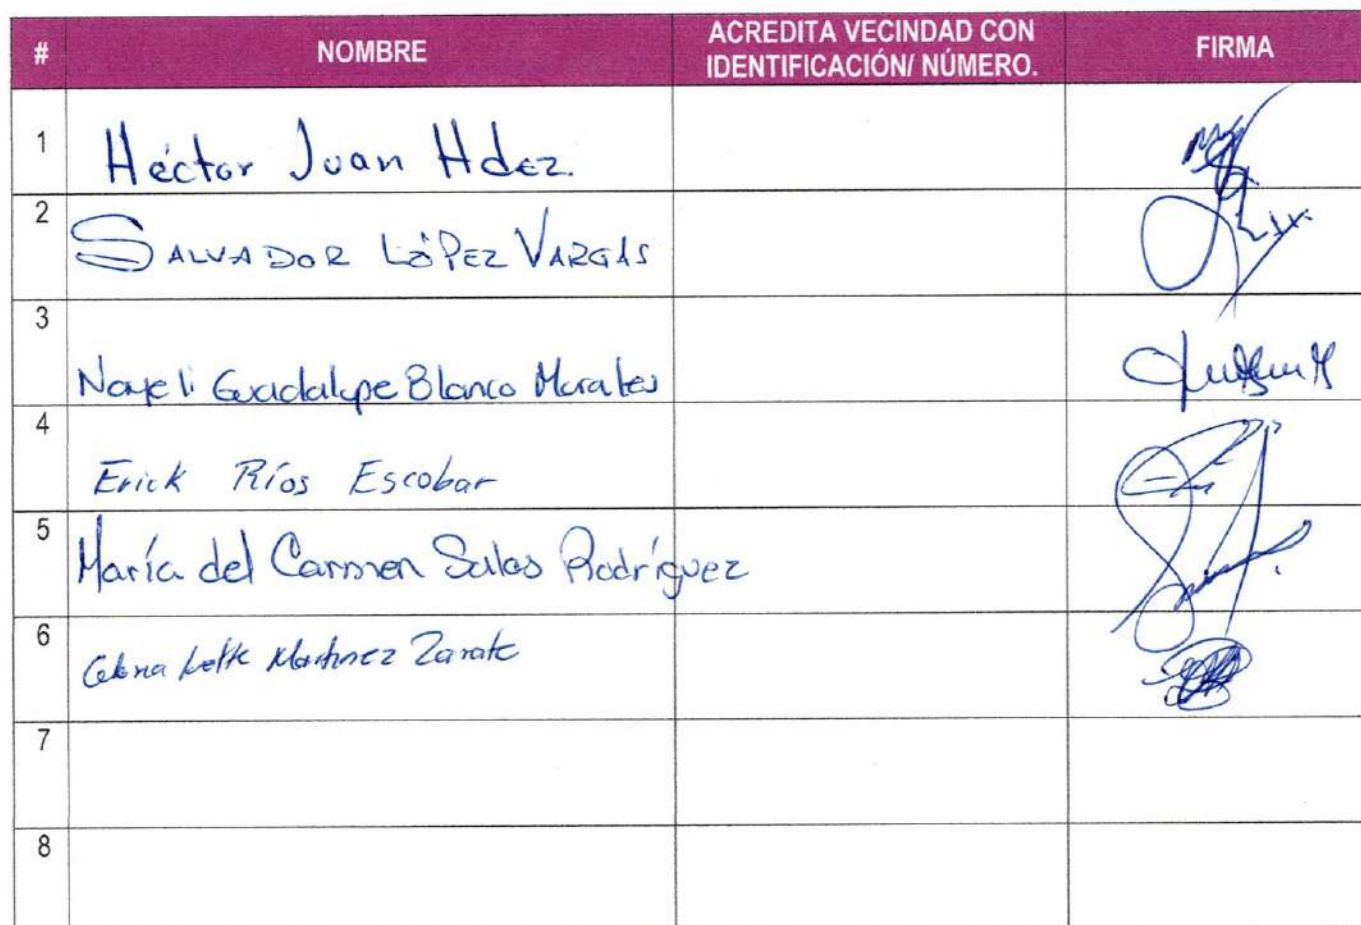 # NOMBRE ACREDITA VECINDAD CON IDENTIFICACIÓN/ NÚMERO. FIRMA
1 Héctor Juan Hdez.
2 SALVADOR LÓPEZ VARGAS
3 Nayeli Guadalupe Blanco Morales
4 Erick Ríos Escobar
5 María del Carmen Salas Rodríguez
6 Martinez Zarate
7
8